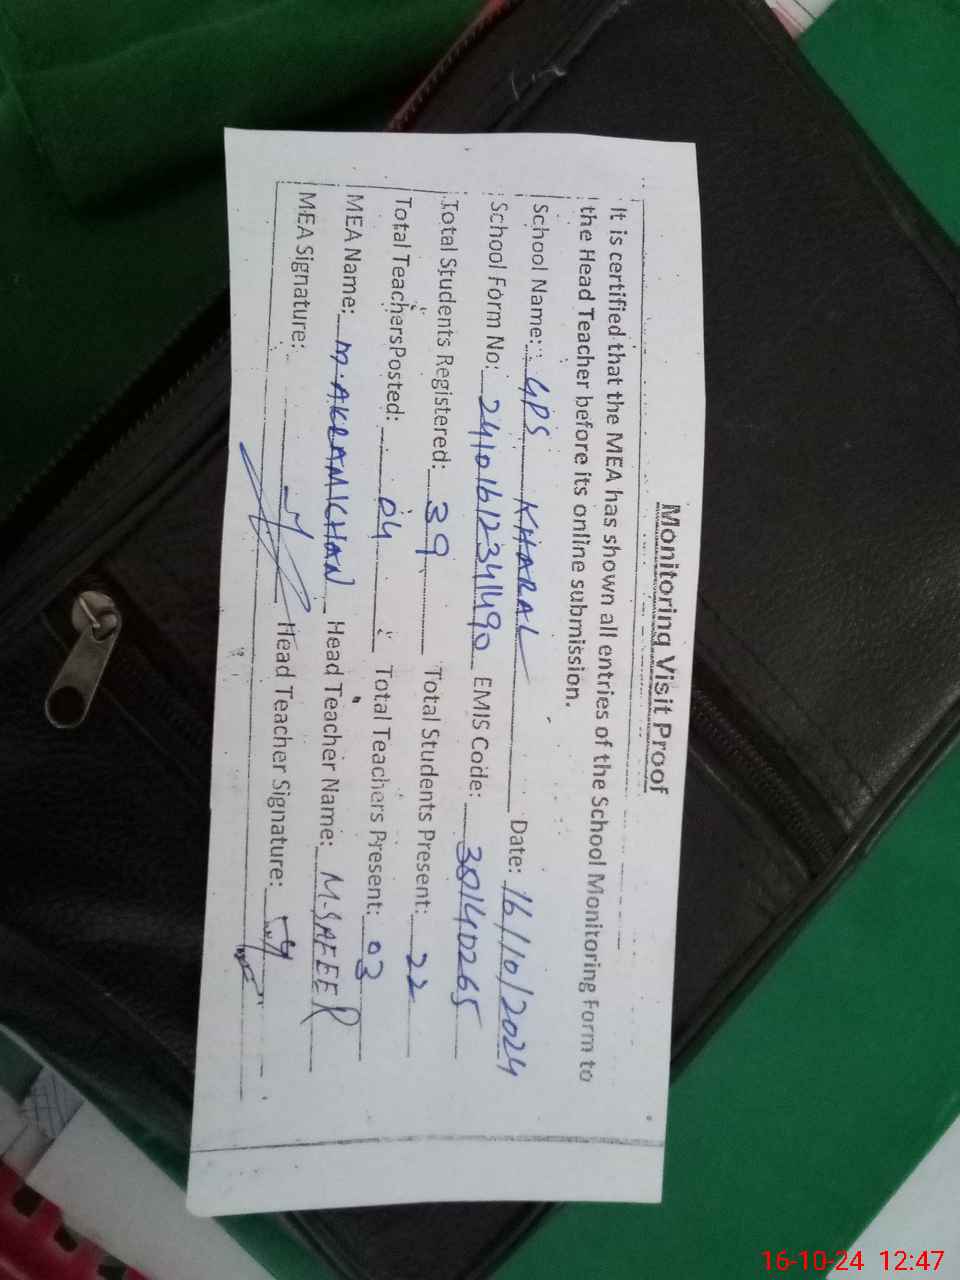 Monitoring Visit Proof
It is certified that the MEA has shown all entries of the School Monitoring Form to
the Head Teacher before its online submission.
School Name: GPS KHARAL Date: 16/10/2024
School Form No: 24101612341490 EMIS Code: 38140265
Total Students Registered: 39 Total Students Present: 22
Total TeachersPosted: 04 Total Teachers Present: 03
MEA Name: M.AKRAM KHAN Head Teacher Name: M-SAFEER
MEA Signature: Head Teacher Signature:
16-10-24 12:47